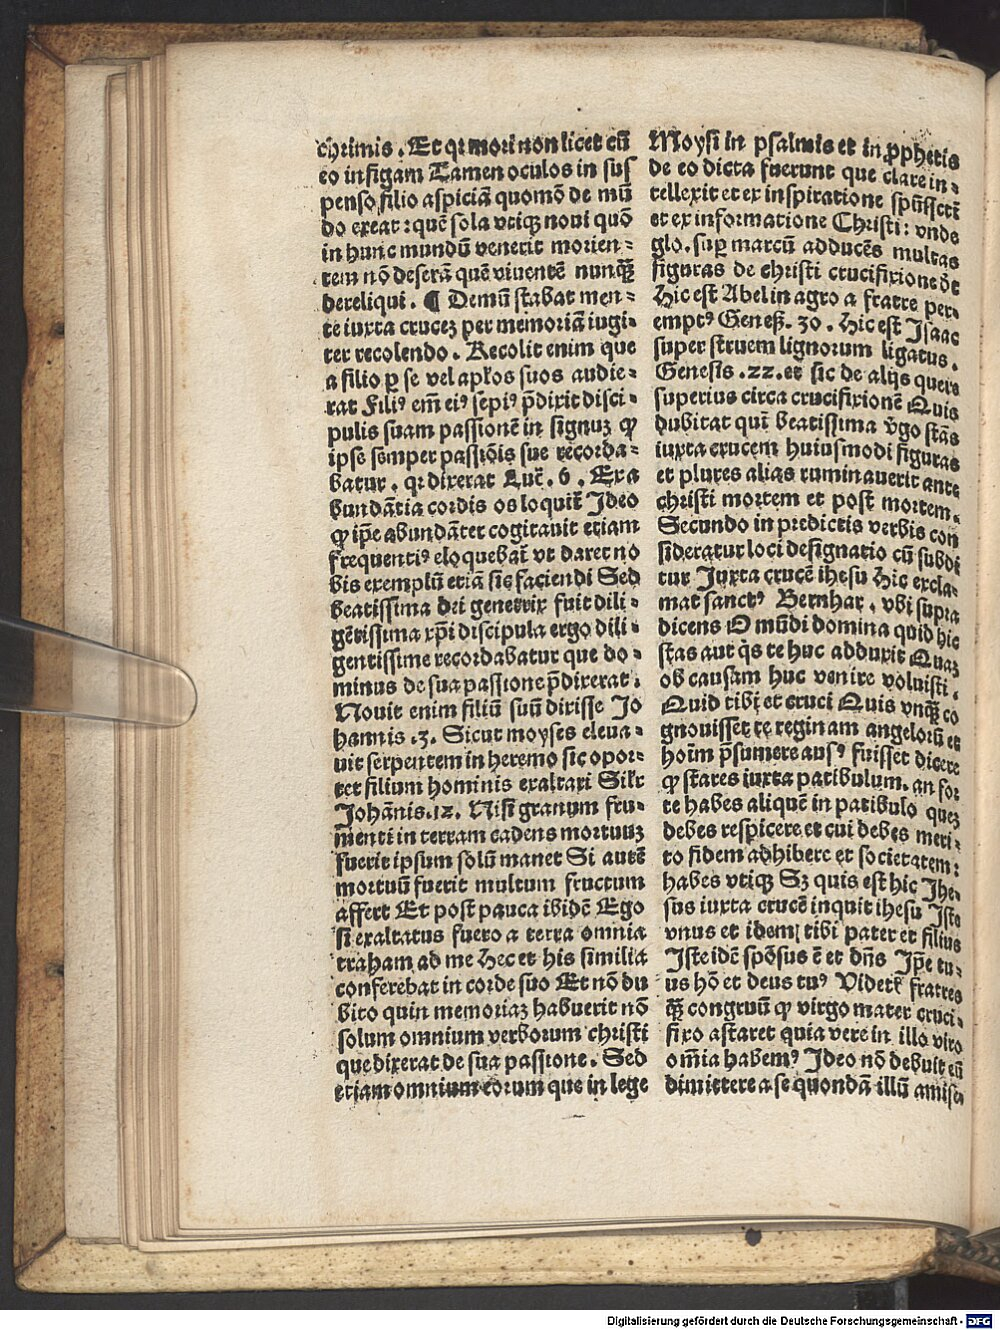 chrimis. Et qꝛ mori non licet cū
eo infigam Tamen oculos in suſ
penso filio aspiciā quomō de mū
do exeat: quē sola vtiqȝ noui quō
in hunc mundū venerit morien⸗
tem nō deserā quē viuentē nunq̄ꝫ
dereliqui. ¶ Demū stabat men⸗
te iuxta crucez per memoriā iugi⸗
ter recolendo. Recolit enim que
a filio ꝑ se vel apłos suos audie⸗
rat Filiꝰ em̄ eiꝰ sepiꝰ p̄dixit disci⸗
pulis suam passionē in signuz ꝙ
ipse semper passiōis sue recorda⸗
batur. qꝛ dixerat Luc̄. 6. Exa
bundātia cordis os loquit̄ Ideo
ꝙ ip̄e abundāter cogitauit etiam
frequentiꝰ eloquebat̄ vt daret no
bis exemplū etiā sic faciendi Sed
beatissima dei genetrix fuit dili⸗
gētissima xp̄i discipula ergo dili⸗
gentissime recordabatur que do⸗
minus de sua passione p̄dixerat.
Nouit enim filiū suū dixisse Jo
hannis .3. Sicut moyses eleua⸗
uit serpentem in heremo sic opor⸗
tet filium hominis exaltari Sił̄r
Johānis.12. Nisi granum fru⸗
menti in terram cadens mortuuz
fuerit ipsum solū manet Si autē
mortuū fuerit multum fructum
affert Et post pauca ibidē Ego
si exaltatus fuero a terra omnia
traham ad me Hec et his similia
conferebat in corde suo Et nō du
bito quin memoriaz habuerit nō
solum omnium verborum christi
que dixerat de sua passione. Sed
etiam omnium eorum que in lege
Moysi in psalmis et in ꝓphetis
de eo dicta fuerunt que clare in⸗
tellexit et ex inspiratione spūſscti
et ex informatione Christi: vnde
glo. suꝑ marcū adducēs multas
figuras de christi crucifixione dt̄
Hic est Abel in agro a fratre per⸗
emptꝰ Geneſ. 30. Hic est Isaac
super struem lignorum ligatus.
Genesis .22. et sic de alijs quere
superius circa crucifixionē Quis
dubitat qui beatissima v̄go stās
iuxta crucem huiusmodi figuras
et plures alias ruminauerit ante
christi mortem et post mortem.
Secundo in predictis verbis con
sideratur loci designatio cū subdi
tur Juxta crucē ihesu Hic excla⸗
mat sanctꝰ Bernhar. vbi supra
dicens O mūdi domina quid hic
stas aut q̇s te huc adduxit Quaz
ob causam huc venire voluisti.
Quid tibi et cruci Quis vnq̄ꝫ co
gnouisset te reginam angelorū et
hoīm p̄sumere ausꝰ fuisset dicere
ꝙ stares iuxta patibulum. an for
te habes aliquē in patibulo quez
debes respicere et cui debes meri⸗
to fidem adhibere et societatem:
habes vtiqȝ Sȝ quis est hic Ihe⸗
sus iuxta crucē inquit ihesu Iste
vnus et idem tibi pater et filius
Iste idē spōsus ē et dn̄s Ip̄e tu⸗
us hō et deus tuꝰ Videtꝭ fratres
q̄ꝫ congruū ꝙ virgo mater cruci⸗
fixo astaret quia vere in illo viro
om̄ia habemꝰ Ideo nō debuit eū
dimittere a se quondā illū amise⸗
Digitalisierung gefördert durch die Deutsche Forschungsgemeinschaft - DFG